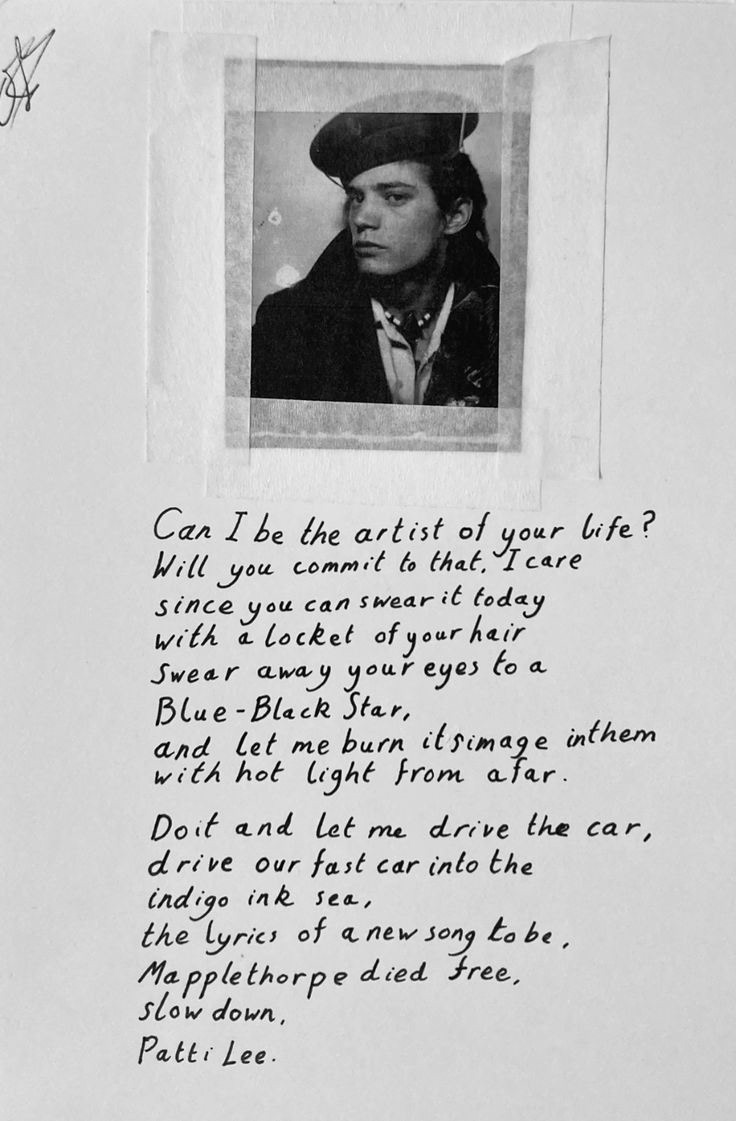 Can I be the artist of your life?
Will you commit to that. I care
since you can swear it today
with a locket of your hair
Swear away your eyes to a
Blue-Black Star,
and let me burn its image in them
with hot light from afar.
Do it and let me drive the car,
drive our fast car into the
indigo ink sea,
the lyrics of a new song to be,
Mapplethorpe died free,
slow down,
Patti Lee.